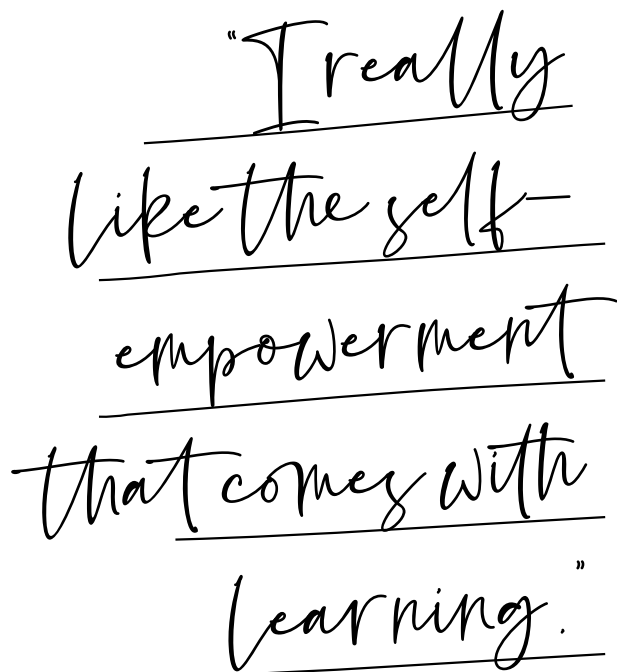 “I really
like the self-
empowerment
that comes with
learning.”